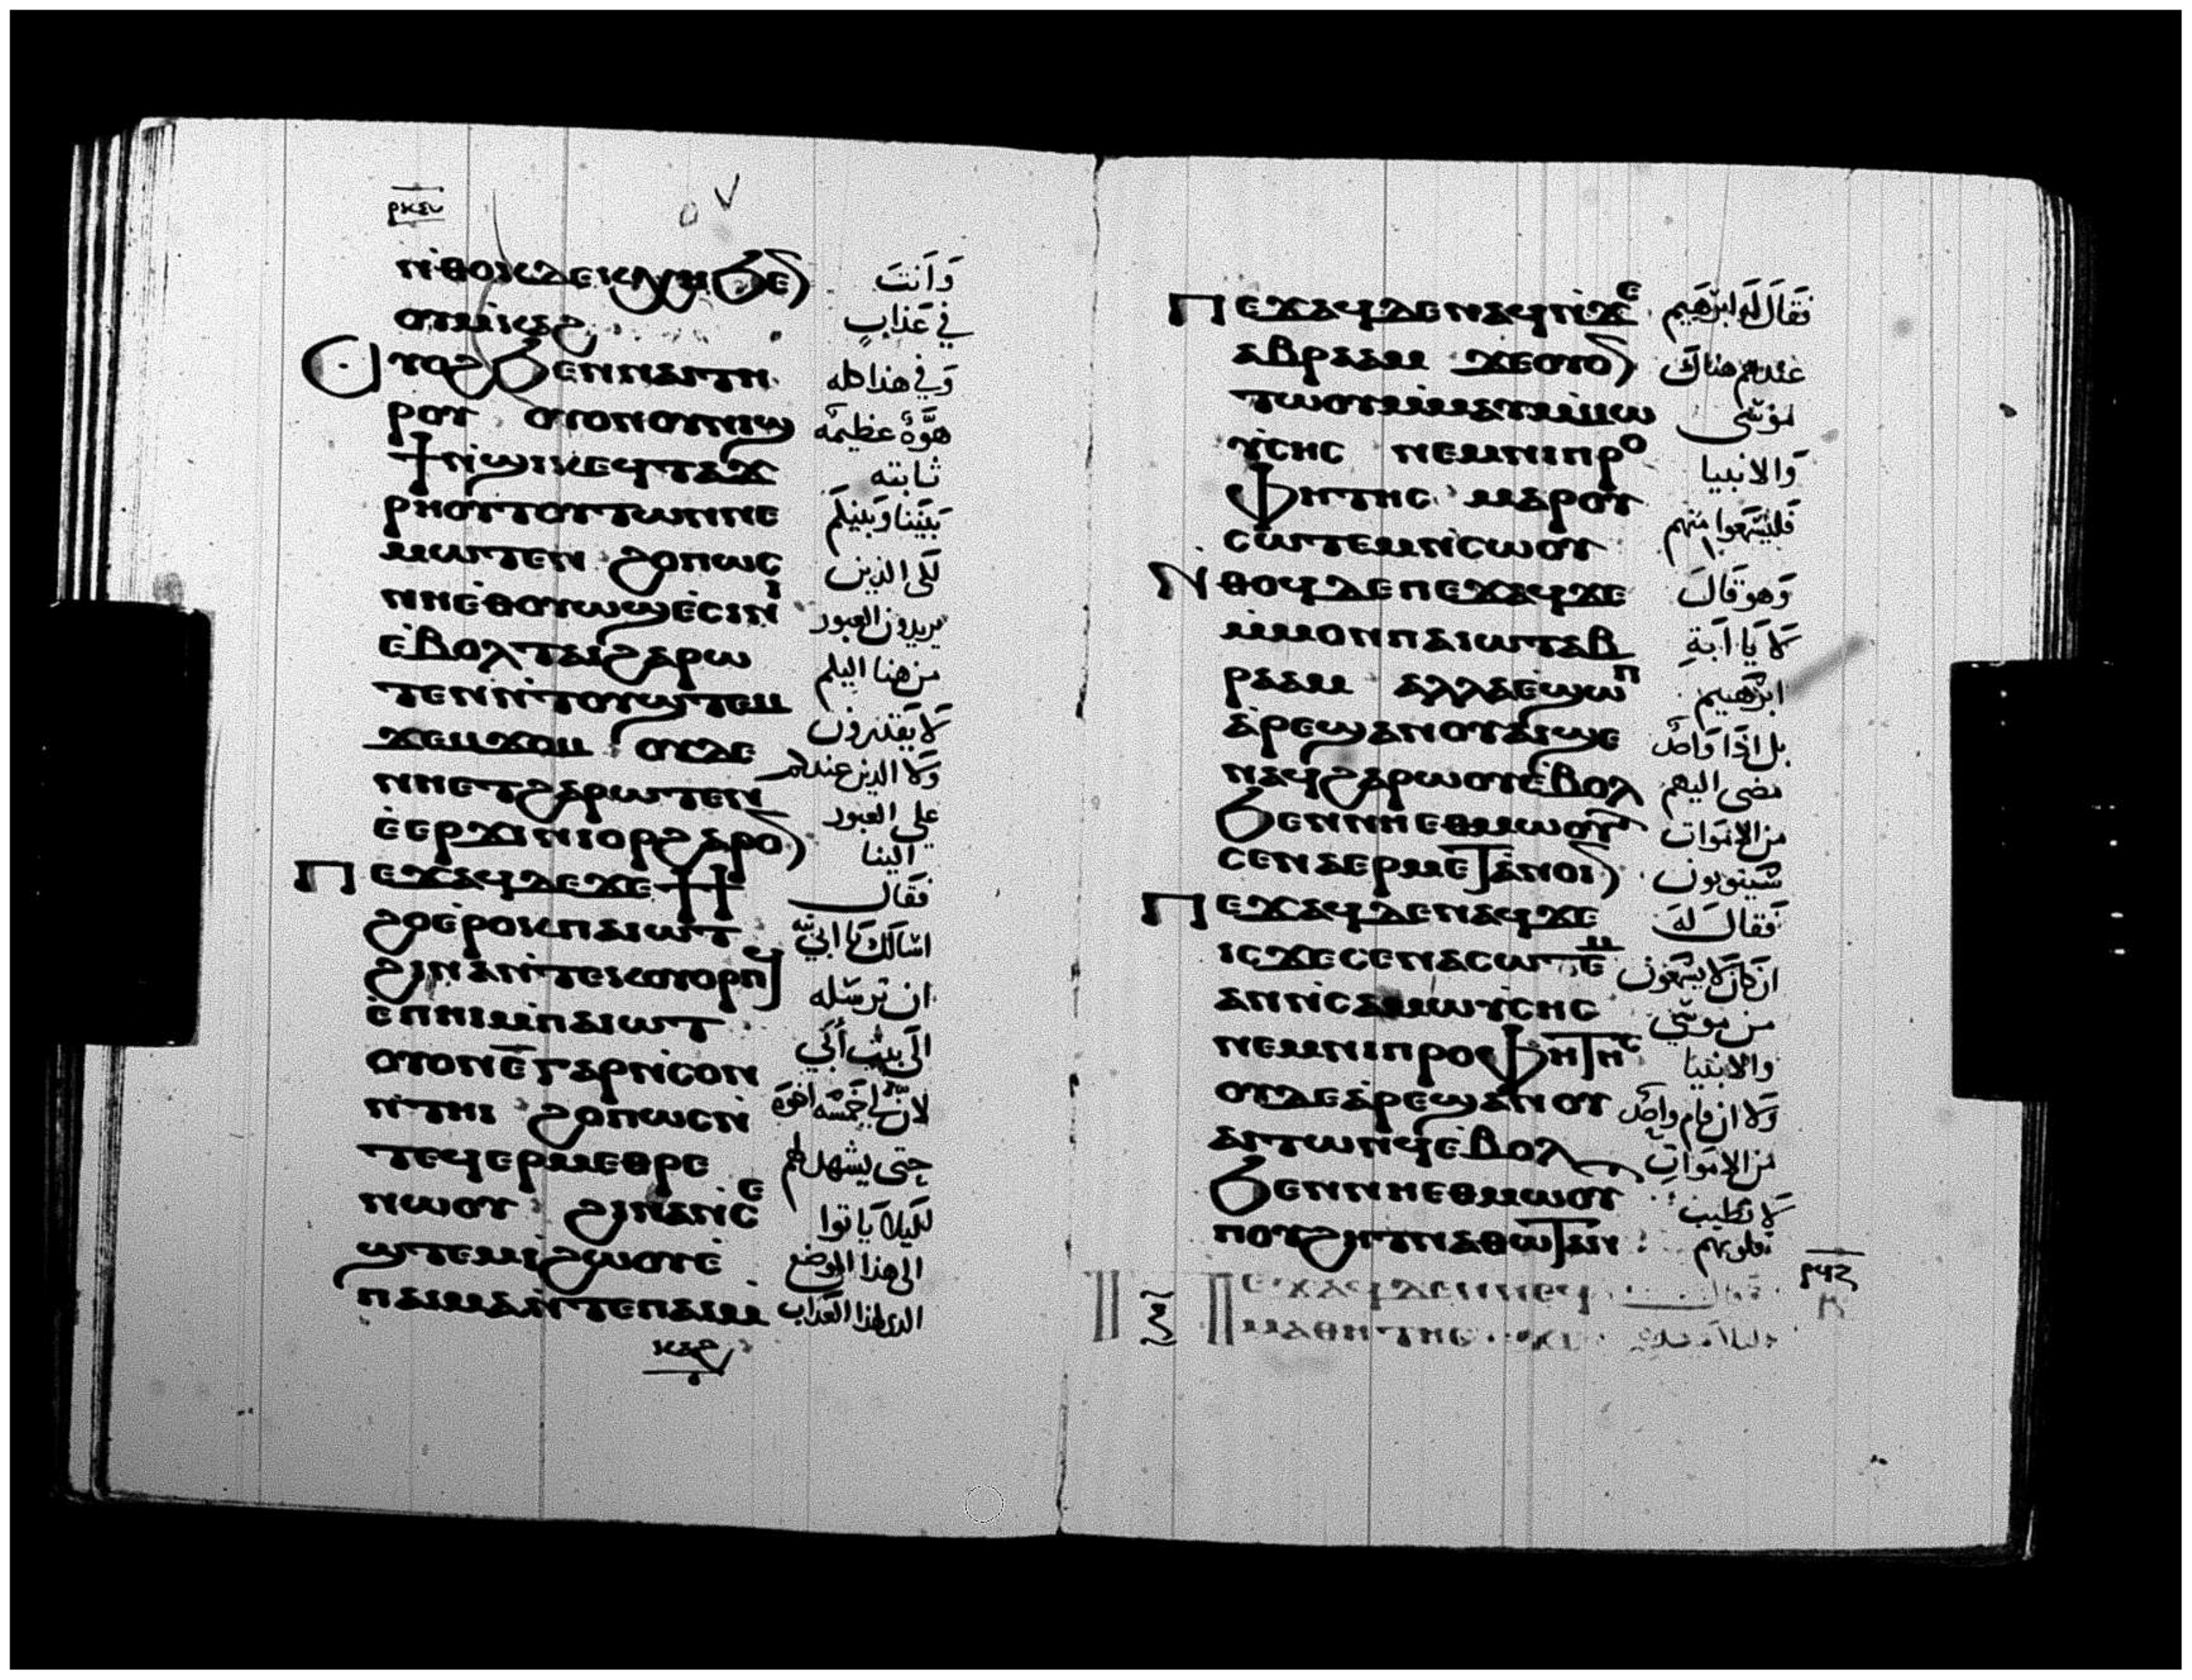 ⲣⲕⲍ
ⲛ̇ⲑⲟⲕⲇⲉⲕⲭⲏϧⲉⲛ وَاَنتَ
ⲟⲩⲙ̇ⲕⲁϩ في عَذابٍ
ⲟⲩⲟϩϧⲉⲛⲛⲁⲓⲧⲏ وَفي هذا كله
ⲣⲟⲩ ⲟⲩⲟⲛⲟⲩⲛⲓϣ هوَّةٌ عظيمَه
ϯⲛ̇ϣⲓⲕⲉϥⲧⲁϫ ثابته
ⲣⲏⲟⲩⲧⲟⲩⲧⲱⲛⲛⲉ بَيننا وَبينكم
ⲙⲱⲧⲉⲛ ϩⲟⲡⲱⲥ لكي الذين
ⲛⲏⲉ̇ⲑⲟⲩⲱϣⲉ̇ⲥⲓⲛⲓ يريدون العبور
ⲉ̇ⲃⲟⲗⲧⲁⲓϩⲁⲣⲱ من هنا اليكم
ⲧⲉⲛⲛ̇ⲧⲟⲩϣⲧⲉⲙ لَا يَقتدرون
ϫⲉⲙϫⲟⲙ ⲟⲩⲇⲉ وَلا الذين عندكم
ⲛⲏⲉⲧϩⲁⲣⲱⲧⲉⲛ على العبور
ⲉ̇ⲉⲣϫⲓⲛⲓⲟⲣϩⲁⲣⲟⲛ الينا
ⲡⲉϫⲁϥⲇⲉϫⲉϯϯ فقَال
ϩⲟⲉ̇ⲣⲟⲕⲡⲁⲓⲱⲧ اسَالك يَا ابي
ϩⲓⲛⲁⲛ̇ⲧⲉⲕⲟⲩⲟⲣⲡϥ ان ترسَله
ⲉ̇ⲡⲏⲓⲙ̇ⲡⲁⲓⲱⲧ الَى بيت أَبي
ⲟⲩⲟⲛⲉ̅ⲅⲁⲣⲛ̇ⲥⲟⲛ لانّ لي خمسَه اخوَة
ⲛ̇ⲧⲏⲓ ϩⲟⲡⲱⲥⲛ̇ حتى يشهد لهم
ⲧⲉϥⲉⲣⲙⲉⲑⲣⲉ لكيلا يَاتوا
ⲛⲱⲟⲩ ϩⲓⲛⲁⲛ̇ⲥⲉ الى هذا الموضع
ϣⲧⲉⲙⲓ̇ϩⲱⲟⲩⲉ̇ الذي لهذا العذَاب
ⲡⲁⲓⲙⲁⲛ̇ⲧⲉⲡⲁⲓⲙ
ⲕⲁϩ
ⲡⲉϫⲁϥⲇⲉⲛⲁϥⲛ̇ϫⲉ فقَالَ لَه ابرَهيم
ⲁⲃⲣⲁⲁⲙ ϫⲉⲟⲩⲟⲛ عندهم هناكَ
ⲧⲱⲟⲩⲙ̇ⲙⲁⲩⲙ̇ⲙⲱ موسَى
ⲩ̇ⲥⲏⲥ ⲛⲉⲙⲛⲓⲡⲣⲟ وَالانبيا
ⲫⲏⲧⲏⲥ ⲙⲁⲣⲟⲩ فَليسَمعوا منهم
ⲥⲱⲧⲉⲙⲛ̇ⲥⲱⲟⲩ
ⲛ̇ⲑⲟϥⲇⲉⲡⲉϫⲁϥϫⲉ وَهو قَال
ⲙ̇ⲙⲟⲛⲡⲁⲓⲱⲧⲁⲃ لَا يَا اَبَةِ
ⲣⲁⲁⲙ ⲁⲗⲗⲁⲉ̇ϣⲱⲡ ابرَهيم
ⲁ̇ⲣⲉϣⲁⲛⲟⲩⲁⲓϣⲉ بل اذَا وَاحد
ⲛⲁϥϩⲁⲣⲱⲟⲩⲉ̇ⲃⲟⲗ مَضى اليهم
ϧⲉⲛⲛⲏⲉⲑⲙⲱⲟⲩⲧ من الامَوات
ⲥⲉⲛⲁⲉⲣⲙⲉⲧⲁⲛⲟⲓⲛ سَيتوبون
ⲡⲉϫⲁϥⲇⲉⲛⲁϥϫⲉ فقَالَ لَهَ
ⲓⲥϫⲉⲥⲉⲛⲁⲥⲱⲧⲉⲙ ان كانَ لا يسَمعون
ⲁⲛⲛ̇ⲥⲁⲙⲱⲩ̇ⲥⲏⲥ من موسَى
ⲛⲉⲙⲛⲓⲡⲣⲟⲫⲏⲧⲏⲥ والانبيا
ⲟⲩⲇⲉⲁ̇ⲣⲉϣⲁⲛⲟⲩ وَلا ان قام واحد
ⲁⲓⲧⲱⲛϥⲉ̇ⲃⲟⲗ من الامَوات
ϧⲉⲛⲛⲏⲉⲑⲙⲱⲟⲩⲧ لَا تطيب
ⲡⲟⲩϩⲏⲧⲛⲁⲑⲱⲧⲁⲛ قلوبهم
ⲡⲉϫⲁϥⲇⲉⲛⲛⲉϥ وقال
ⲙⲁⲑⲏⲧⲏⲥ ϫⲉ